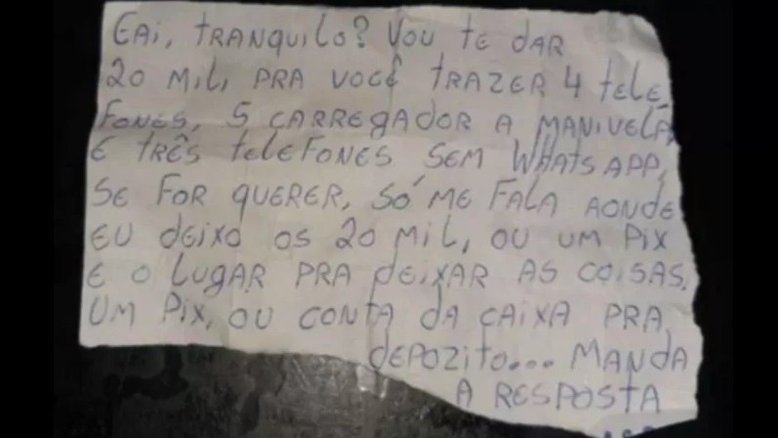 EAI, TRANQUILO? VOU TE DAR
20 MIL, PRA VOCÊ TRAZER 4 TELE
FONES, 5 CARREGADOR A MANIVELA,
E TRÊS TELEFONES SEM WHATSAPP,
SE FOR QUERER, SÓ ME FALA AONDE
EU DEIXO OS 20 MIL, OU UM PIX
E O LUGAR PRA DEIXAR AS COISAS.
UM PIX, OU CONTA DA CAIXA PRA
DEPOZITO... MANDA
A RESPOSTA